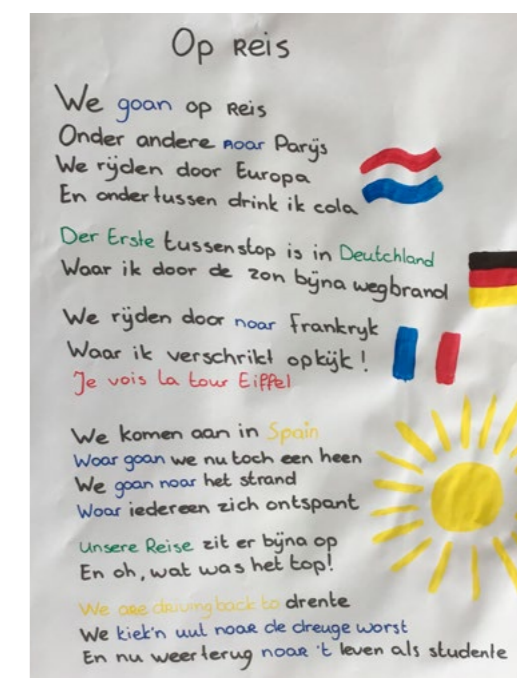 Op Reis
We goan op Reis
Onder andere noar Parijs
We rijden door Europa
En ondertussen drink ik cola
Der Erste tussenstop is in Deutchland
Waar ik door de zon bijna wegbrand
We rijden door noar Frankrijk
Waar ik verschrikt opkijk!
Je vois la tour Eiffel
We komen aan in Spain
Woar goan we nu toch een heen
We goan noar het strand
Woar iedereen zich ontspant
Unsere Reise zit er bijna op
En oh, wat was het top!
We are driving back to drente
We kiek'n uut noar de dreuge worst
En nu weer terug noar 't leven als studente